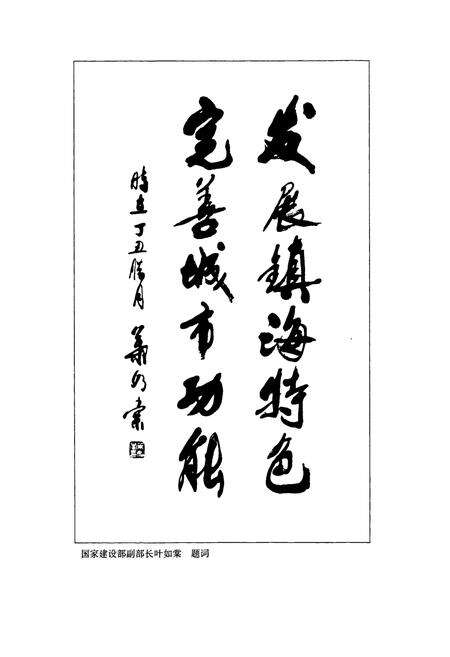 发展镇海特色
完善城市功能
時在丁丑腊月
葉如棠
国家建设部副部长叶如棠 题词